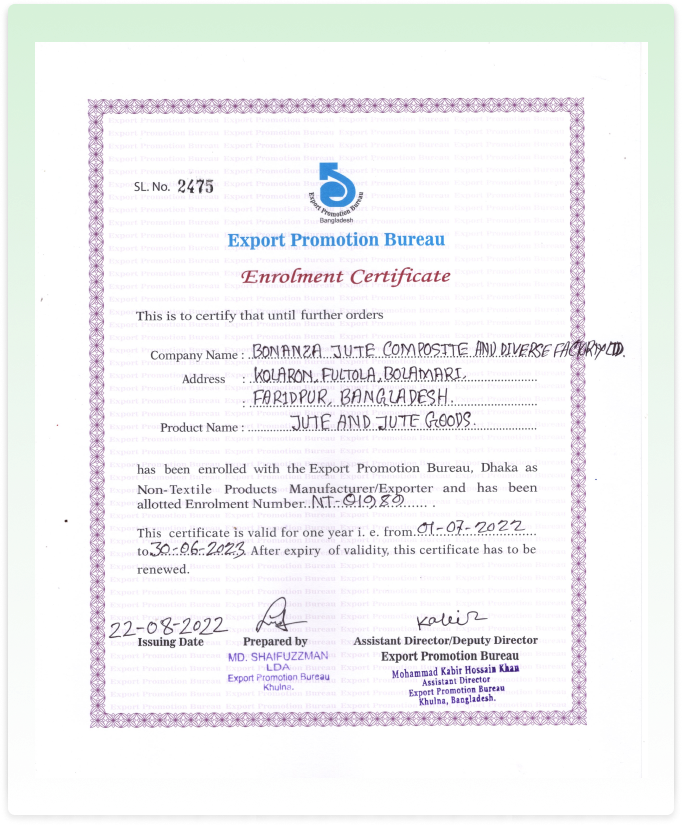 SL. No. 2475
Export Promotion Bureau
Bangladesh
Export Promotion Bureau
Enrolment Certificate
This is to certify that until further orders
Company Name : BONANZA JUTE COMPOSITE AND DIVERSE FACTORY LTD.
Address : KOLARON, FULTOLA, BOLAMARI,
: FARIDPUR, BANGLADESH.
Product Name : JUTE AND JUTE GOODS.
has been enrolled with the Export Promotion Bureau, Dhaka as
Non-Textile Products Manufacturer/Exporter and has been
allotted Enrolment Number. NT-01989 .
This certificate is valid for one year i. e. from 01-07-2022
to 30-06-2023. After expiry of validity, this certificate has to be
renewed.
22-08-2022
Kabir
Issuing Date Prepared by Assistant Director/Deputy Director
MD. SHAIFUZZMAN Export Promotion Bureau
LDA Mohammad Kabir Hossain Khan
Export Promotion Bureau Assistant Director
Khulna. Export Promotion Bureau
Khulna, Bangladesh.